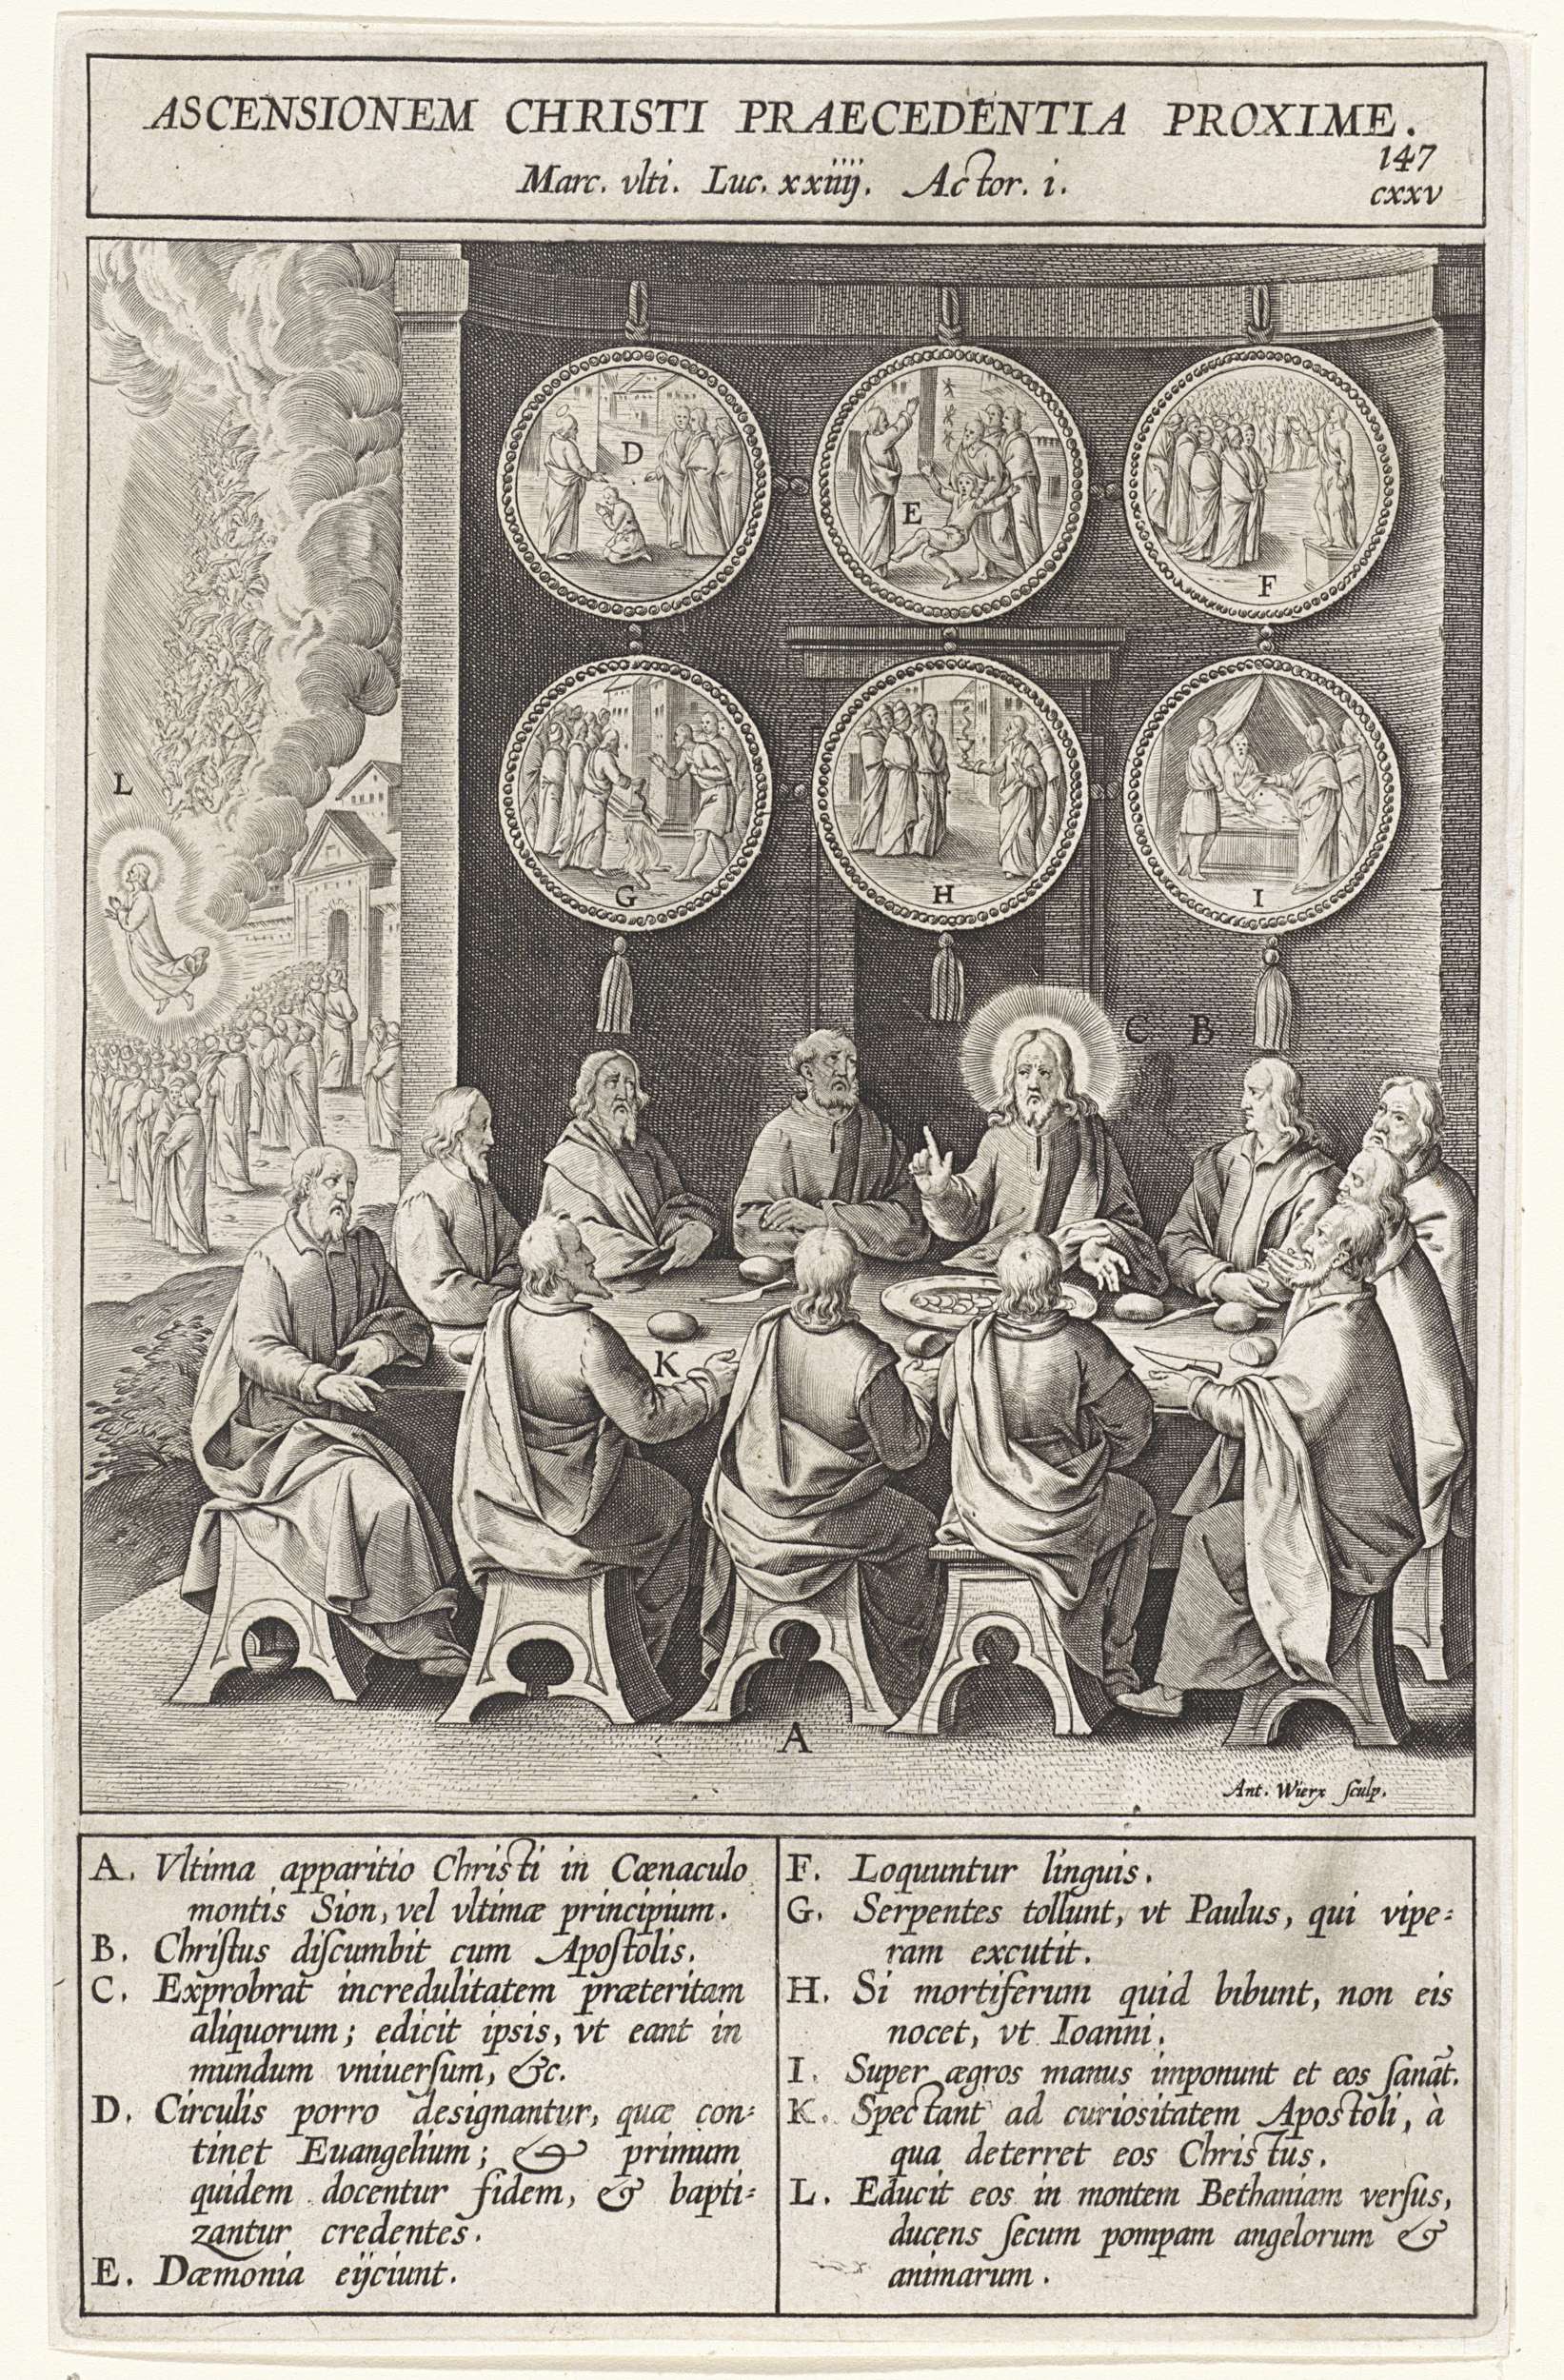 ASCENSIONEM CHRISTI PRAECEDENTIA PROXIME.
147
Marc. vlti. Luc. xxiiij. Actor. i.
cxxv
D
E
F
L
G
H
I
C B
K
A
Ant. Wierx ſculp.
A. Vltima apparitio Christi in Cœnaculo
montis Sion, vel vltimæ principium.
B. Chriſtus diſcumbit cum Apoſtolis.
C. Exprobrat incredulitatem præteritam
aliquorum; edicit ipsis, vt eant in
mundum vniuerſum, &c.
D. Circulis porro designantur, quæ con=
tinet Euangelium; & primum
quidem docentur fidem, & bapti=
zantur credentes.
E. Dæmonia eijciunt.
F. Loquuntur linguis.
G. Serpentes tollunt, vt Paulus, qui vipe=
ram excutit.
H. Si mortiferum quid bibunt, non eis
nocet, vt Ioanni.
I. Super ægros manus imponunt et eos ſanãt.
K. Spectant ad curiositatem Apostoli, à
qua deterret eos Christus.
L. Educit eos in montem Bethaniam verſus,
ducens ſecum pompam angelorum &
animarum.